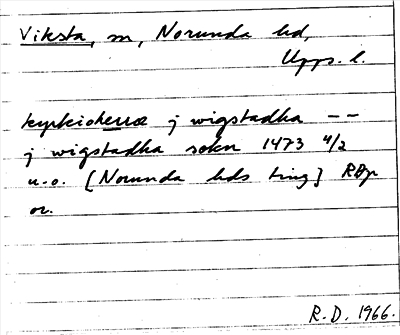 Viksta, sn, Norunda hd,
Upps. l.
kyrkioherra j wigstadha --
j wigstadha sokn 1473 4/2
u.o. [Norunda hds ting] RAp
or.
R.D. 1966.